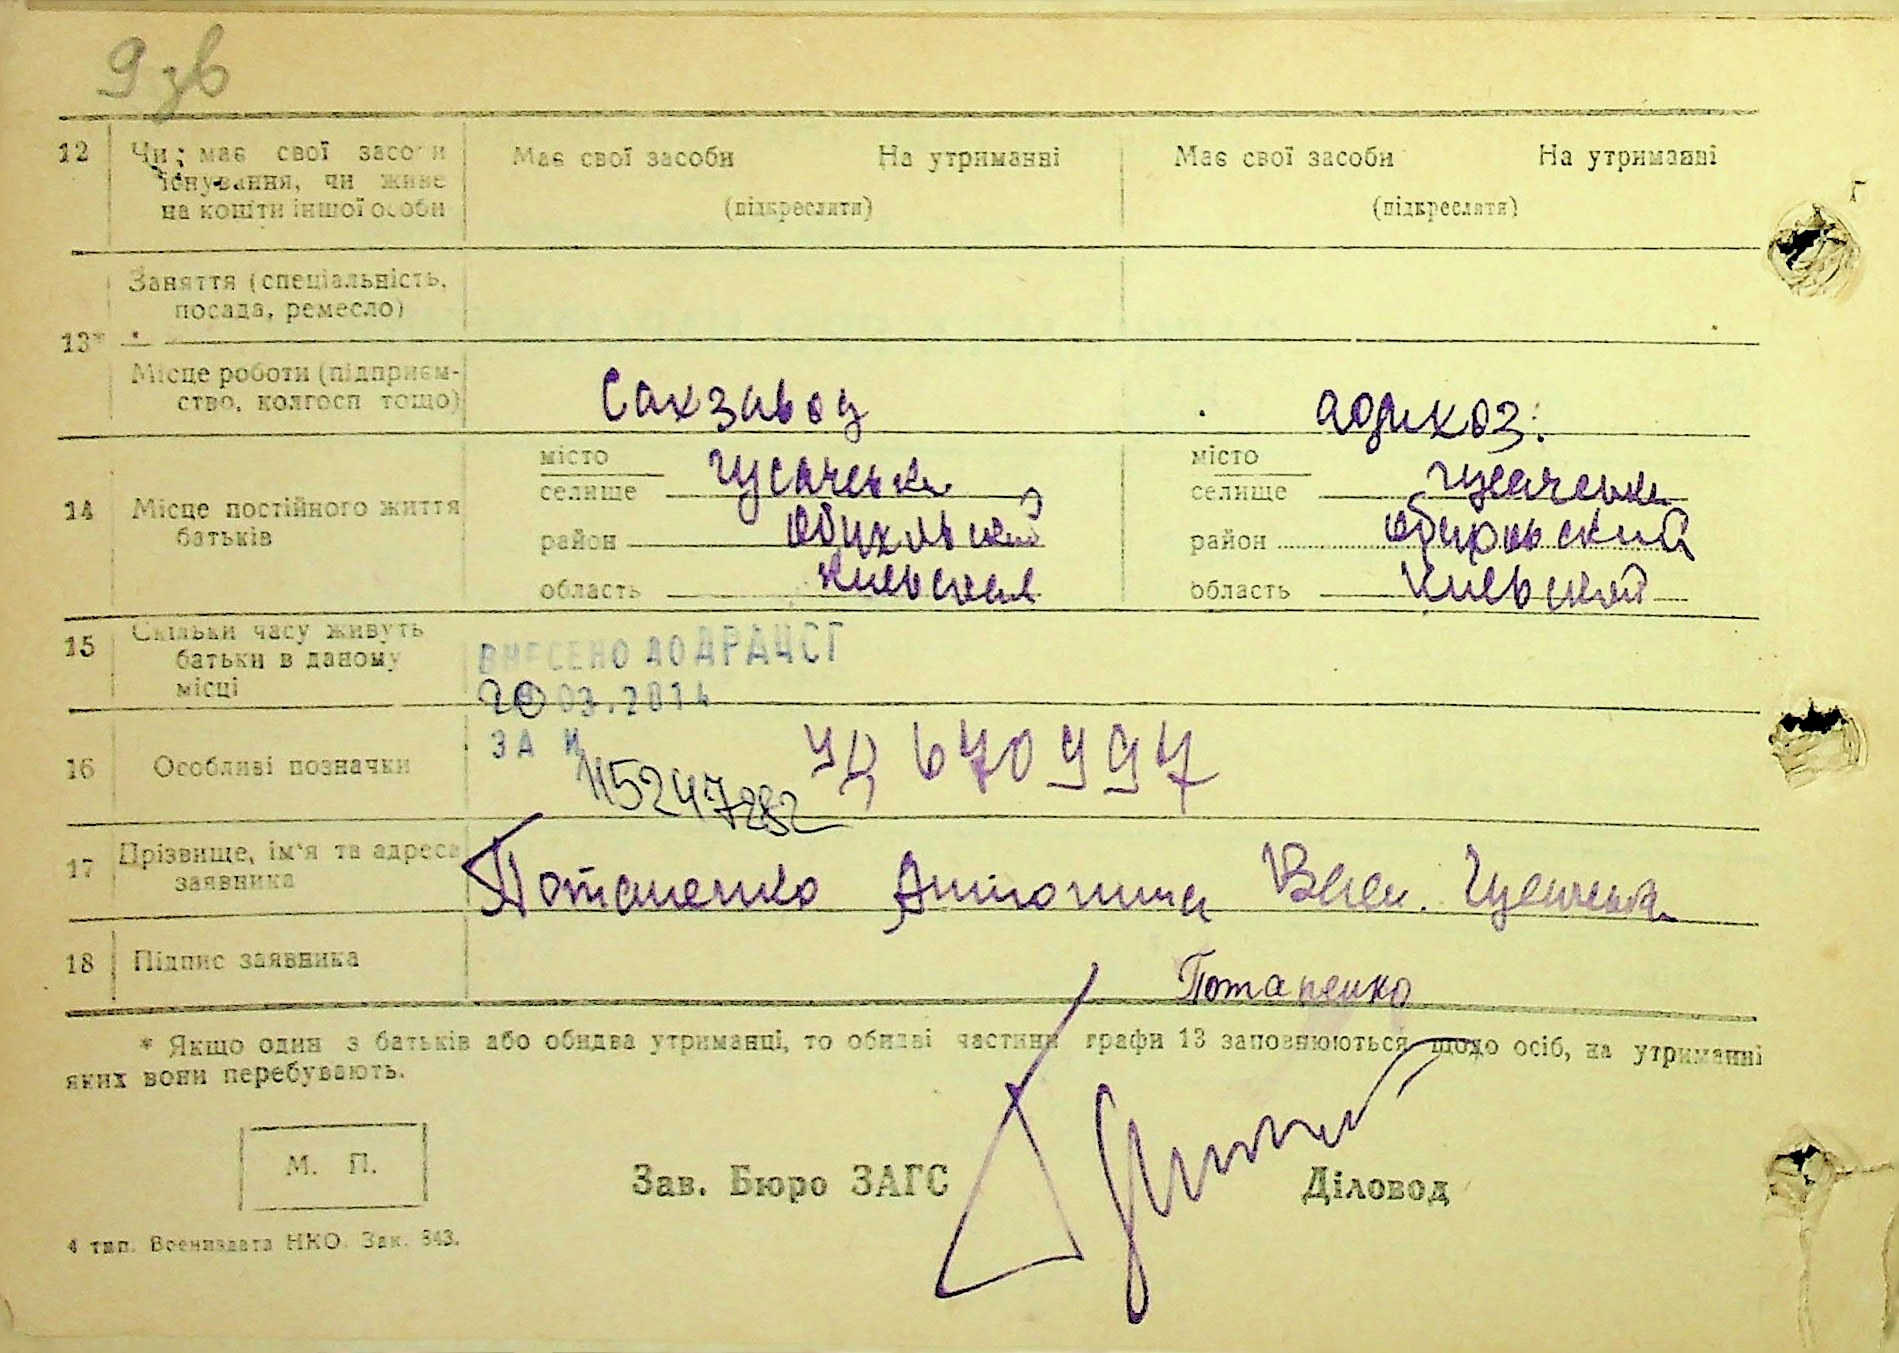 9 зв
12 Чи має свої засоби Має свої засоби На утриманні Має свої засоби На утриманні
існування, чи живе
на кошти іншої особи (підкреслити) (підкреслити)
Заняття (спеціальність,
посада, ремесло)
13*
Місце роботи (підприєм-
ство, колгосп тощо) Сахзавод
місто Гусачевка місто
селище селище
14 Місце постійного життя
батьків район район
область Киевская область Киевской
15 Скільки часу живуть
батьки в даному
місці
ВНЕСЕНО ДО ДРАЦСГ
20 03.2014
ЗА №
16 Особливі позначки 670997
115247282
17 Прізвище, ім'я та адреса
заявника Потапенко Антонина
18 Підпис заявника Потапенко
* Якщо один з батьків або обидва утриманці, то обидві частини графи 13 заповнюються щодо осіб, на утриманні
яких вони перебувають.
М. П.
Зав. Бюро ЗАГС Діловод
4 тип. Воениздата НКО. Зак. 843.